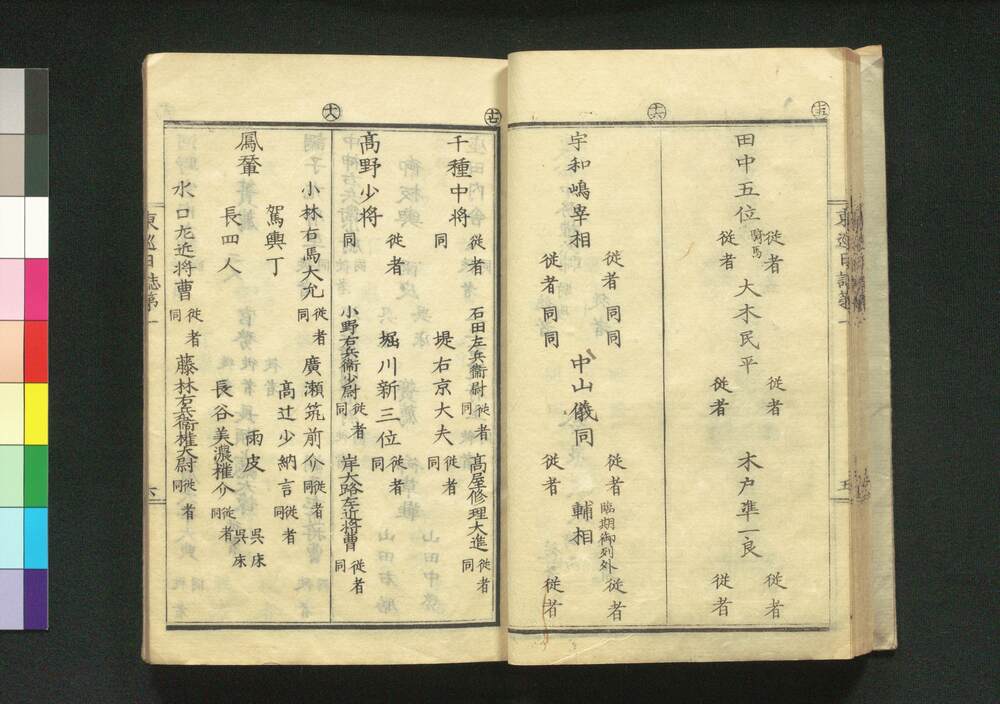 十五
田中五位
騎馬
従者
従者
大木民平
従者
従者
木戸準一良
従者
従者
十六
宇和嶋宰相
従者同
従者同
同
同
中山儀同
従者
従者
輔相
臨期御列外
従者
従者
東巡日誌第一
五
千種中将
従者
同
石田左兵衞尉
堤右京大夫
従者
同
従者
同
髙屋修理大進
従者
同
髙野少将
従者
同
堀川新三位
小野右兵衞少尉
従者
同
従者
同
岸大路左近将曹
従者
同
小林右馬大允
従者
同
廣瀬筑前介
従者
同
駕輿丁
髙辻少納言
従者
同
鳳輦
雨皮
長四人
長谷美濃権介
従者
同
呉床
呉床
水口左近将曹
従者
同
藤林右兵衞権大尉
従者
同
東巡日誌第一
六